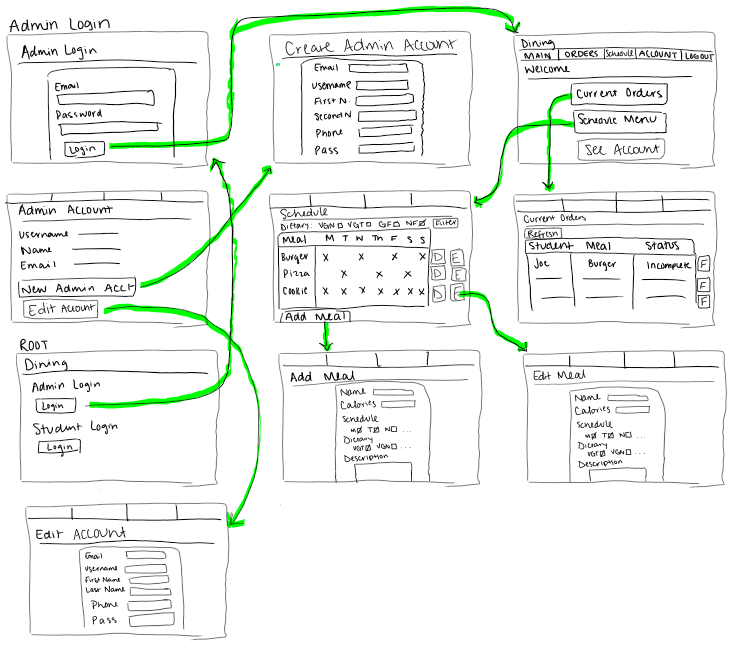 Admin Login
Admin Login
Email
Password
Login
Create Admin Account
Email
Username
First N.
Second N
Phone
Pass
Dining
MAIN ORDERS Schedule ACCOUNT LOGOUT
Welcome
Current Orders
Schedule Menu
See Account
Admin Account
Username
Name
Email
New Admin Acct
Edit Account
Schedule
Dietary: VGN VGT GF NF Filter
Meal M T W Th F S S
Burger X X X X D E
Pizza X X X D E
Cookie X X X X X X X D E
Add Meal
Current Orders
Refresh
Student Meal Status
Joe Burger Incomplete F
F
F
ROOT
Dining
Admin Login
Login
Student Login
Login
Add Meal
Name
Calories
Schedule
M T N ...
Dietary
VGT VGN ...
Description
Edit Meal
Name
Calories
Schedule
M T N ...
Dietary
VGT VGN ...
Description
Edit Account
Email
Username
First Name
Last Name
Phone
Pass